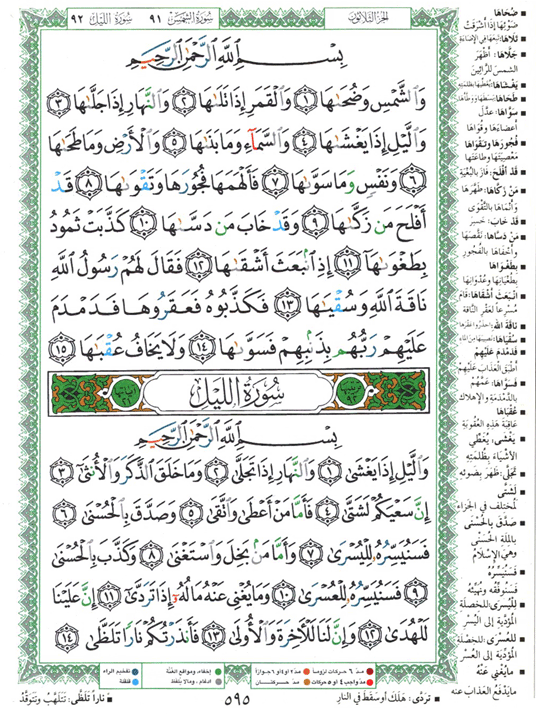 سُورَةُ اللَّيْل ٩٢
سُورَةُ الشَّمْس ٩١
الجزء الثلاثون
بِسْمِ اللَّهِ الرَّحْمَٰنِ الرَّحِيمِ
وَالشَّمْسِ وَضُحَىٰهَا ١ وَالْقَمَرِ إِذَا تَلَىٰهَا ٢ وَالنَّهَارِ إِذَا جَلَّىٰهَا ٣
وَالَّيْلِ إِذَا يَغْشَىٰهَا ٤ وَالسَّمَآءِ وَمَا بَنَىٰهَا ٥ وَالْأَرْضِ وَمَا طَحَىٰهَا
٦ وَنَفْسٍ وَمَا سَوَّىٰهَا ٧ فَأَلْهَمَهَا فُجُورَهَا وَتَقْوَىٰهَا ٨ قَدْ
أَفْلَحَ مَن زَكَّىٰهَا ٩ وَقَدْ خَابَ مَن دَسَّىٰهَا ١٠ كَذَّبَتْ ثَمُودُ
بِطَغْوَىٰهَآ ١١ إِذِ انۢبَعَثَ أَشْقَىٰهَا ١٢ فَقَالَ لَهُمْ رَسُولُ اللَّهِ
نَاقَةَ اللَّهِ وَسُقْيَٰهَا ١٣ فَكَذَّبُوهُ فَعَقَرُوهَا فَدَمْدَمَ
عَلَيْهِمْ رَبُّهُم بِذَنۢبِهِمْ فَسَوَّىٰهَا ١٤ وَلَا يَخَافُ عُقْبَٰهَا ١٥
سُورَةُ اللَّيْلِ
بِسْمِ اللَّهِ الرَّحْمَٰنِ الرَّحِيمِ
وَالَّيْلِ إِذَا يَغْشَىٰ ١ وَالنَّهَارِ إِذَا تَجَلَّىٰ ٢ وَمَا خَلَقَ الذَّكَرَ وَالْأُنثَىٰٓ ٣
إِنَّ سَعْيَكُمْ لَشَتَّىٰ ٤ فَأَمَّا مَنْ أَعْطَىٰ وَاتَّقَىٰ ٥ وَصَدَّقَ بِالْحُسْنَىٰ ٦
فَسَنُيَسِّرُهُۥ لِلْيُسْرَىٰ ٧ وَأَمَّا مَنۢ بَخِلَ وَاسْتَغْنَىٰ ٨ وَكَذَّبَ بِالْحُسْنَىٰ
٩ فَسَنُيَسِّرُهُۥ لِلْعُسْرَىٰ ١٠ وَمَا يُغْنِى عَنْهُ مَالُهُۥٓ إِذَا تَرَدَّىٰٓ ١١ إِنَّ عَلَيْنَا
لَلْهُدَىٰ ١٢ وَإِنَّ لَنَا لَلْءَاخِرَةَ وَالْأُولَىٰ ١٣ فَأَنذَرْتُكُمْ نَارًا تَلَظَّىٰ ١٤
ضُحَاهَا
ضَوْئِهَا إِذَا أَشْرَقَتْ
تَلَاهَا: تَبِعَهَا فِي الإِضَاءَةِ
جَلَّاهَا: أَظْهَرَ
الشمسَ للرَّائِينَ
يَغْشَاهَا: يُغَطِّيهَا بظلمته
طَحَاهَا: بسطها ووطّأها
سَوَّاهَا: عدّل
أعضاءَها وقُوَاهَا
فُجُورَهَا وتَقْوَاهَا
مَعْصِيَتَهَا وطَاعَتَهَا
قَدْ أَفْلَحَ: فَازَ بالبُغْيَةِ
مَنْ زَكَّاهَا: طَهَّرَهَا
وأَنْمَاهَا بالتَّقْوَى
قَدْ خَابَ: خَسِرَ
مَنْ دَسَّاهَا: نَقَصَهَا
وأَخْفَاهَا بالفُجُورِ
بِطَغْوَاهَا
بِطُغْيَانِهَا وعُدْوَانِهَا
انْبَعَثَ أَشْقَاهَا: قَامَ
مُسْرِعاً لعَقْرِ النَّاقَةِ
نَاقَةَ اللهِ: احْذَرُوا عَقْرَهَا
سُقْيَاهَا: نصيبها من الماء
فَدَمْدَمَ عَلَيْهِمْ
أَطْبَقَ العَذَابَ عَلَيْهِمْ
فَسَوَّاهَا: عَمَّهُمْ
بالدَّمْدَمَةِ والإِهْلَاكِ
عُقْبَاهَا
عَاقِبَةَ هَذِهِ العُقُوبَةِ
يَغْشَى: يُغَطِّي
الأَشْيَاءَ بِظُلْمَتِهِ
تَجَلَّى: ظَهَرَ بِضَوْئِهِ
لَشَتَّى
لمختلف في الجَزَاءِ
صَدَّقَ بِالْحُسْنَى
بالمِلَّةِ الحُسْنَى
وَهِيَ الإِسْلَامُ
فَسَنُيَسِّرُهُ
فَسَنُوَفِّقُهُ ونُهَيِّئُهُ
لِلْيُسْرَى: للخَصْلَةِ
المُؤَدِّيَةِ إِلَى اليُسْرِ
لِلْعُسْرَى: للخَصْلَةِ
المُؤَدِّيَةِ إِلَى العُسْرِ
مَا يُغْنِي عَنْهُ
مَا يَدْفَعُ العَذَابَ عنه
مدّ ٦ حركات لزوماً
مدّ ٢ أو ٤ أو ٦ جوازاً
إخفاء، ومواقع الغنّة
تفخيم الراء
مدّ واجب ٤ أو ٥ حركات
مدّ حركتان
إدغام، وما لا يُلفظ
قلقلة
٥٩٥
تَرَدَّى: هَلَكَ أو سَقَطَ في النَّارِ
نَاراً تَلَظَّى: تَتَلَهَّبُ وتَتَوَقَّدُ